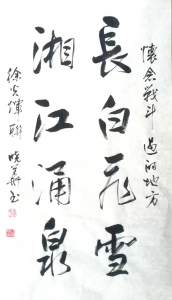 懷念戰斗過的地方
長白飛雪
湘江涌泉
徐光煇聯 曉華书